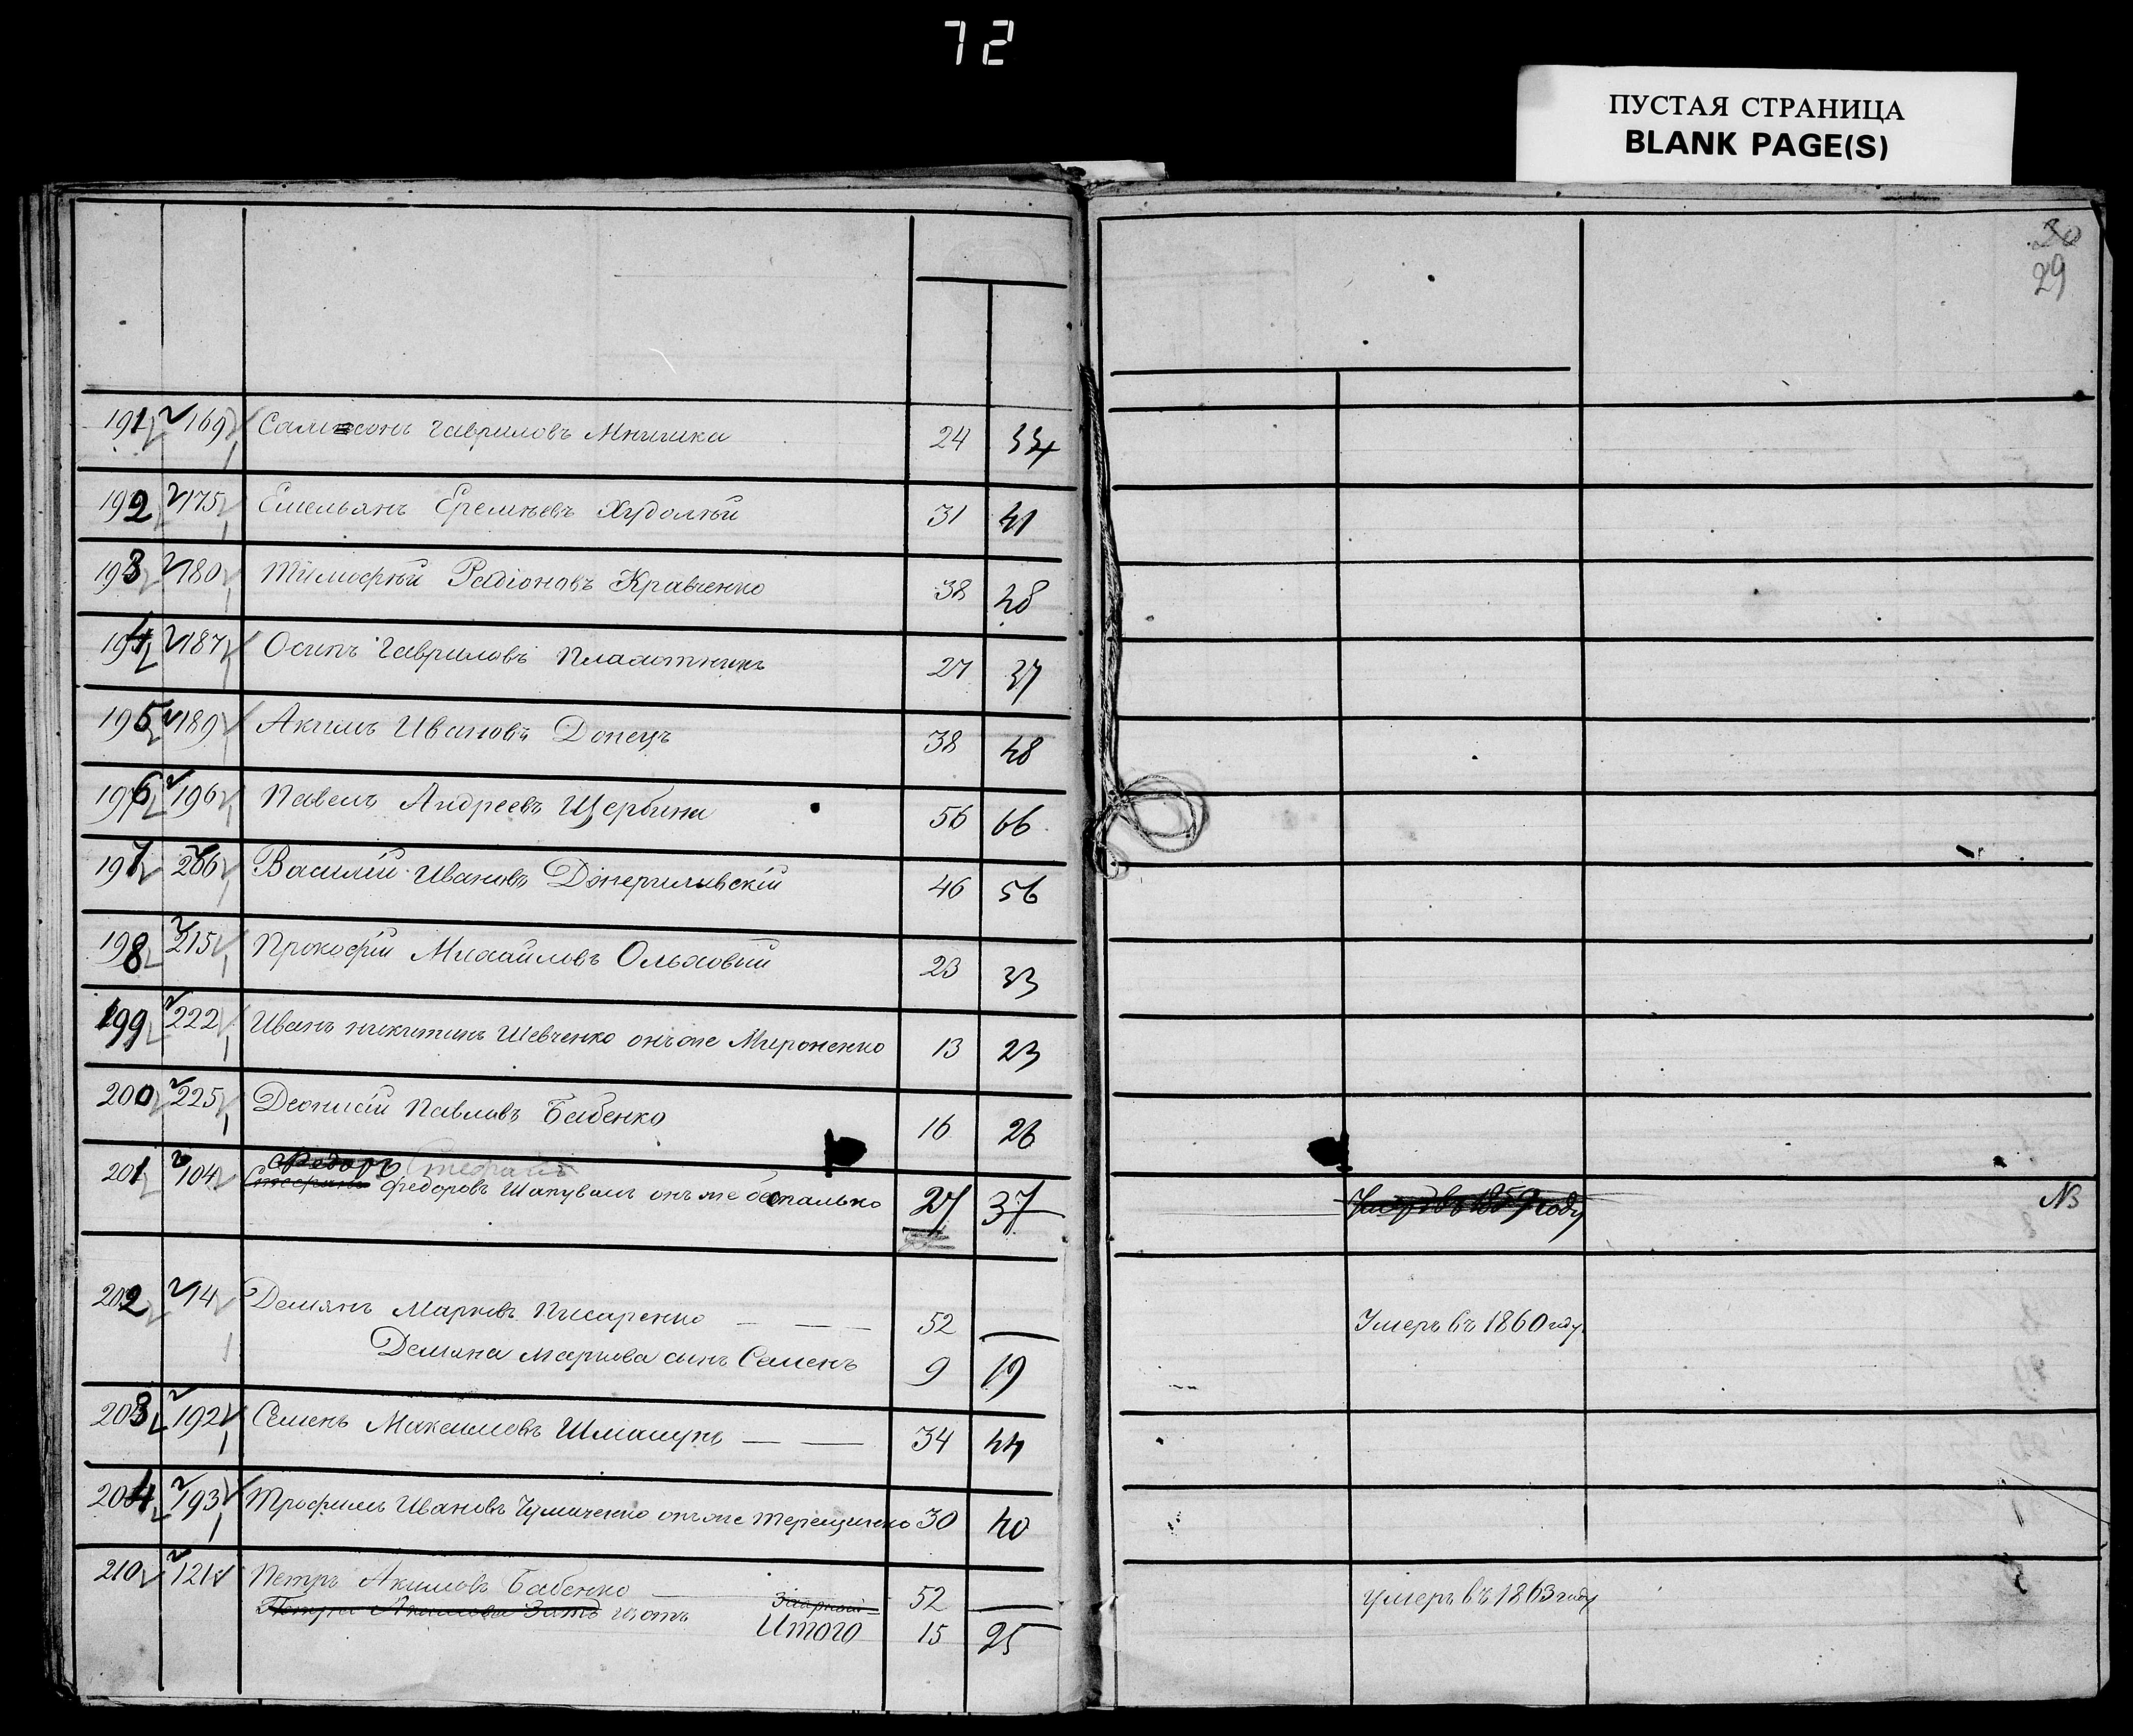 72
ПУСТАЯ СТРАНИЦА
BLANK PAGE(S)
30
29
191 169 Самсонъ Гавриловъ 24 34
192 175 Емельянъ Еремѣевъ Худолѣй 31 41
193 180 Тимофѣй Радіоновъ Кравченко 38 48
194 187 Осипъ Гавриловъ 27 37
195 189 Акимъ Ивановъ Донецъ 38 48
196 196 Павелъ Андреевъ Щербина 56 66
197 206 Василій Ивановъ 46 56
198 215 Прокофій Михайловъ Ольховый 23 33
199 222 Иванъ Никитинъ Шевченко онъ же Мироненко 13 23
200 225 Деонисій Павловъ Бабенко 16 26
Федоръ Стефанъ
201 104 Стефанъ Федоровъ Шаповалъ онъ же Безпалько 27 37 Умеръ въ 1859 году NB
202 14 Демянъ Марковъ Писаренко 52 — Умеръ въ 1860 году
Демяна Маркова сынъ Семенъ 9 19
203 192 Семенъ Максимовъ 34 44
204 193 Трофимъ Ивановъ онъ же Терещенко 30 40
210 121 Петръ Акимовъ Бабенко 52 — Умеръ въ 1863 году
Петра Акимова Зять
Итого 15 25